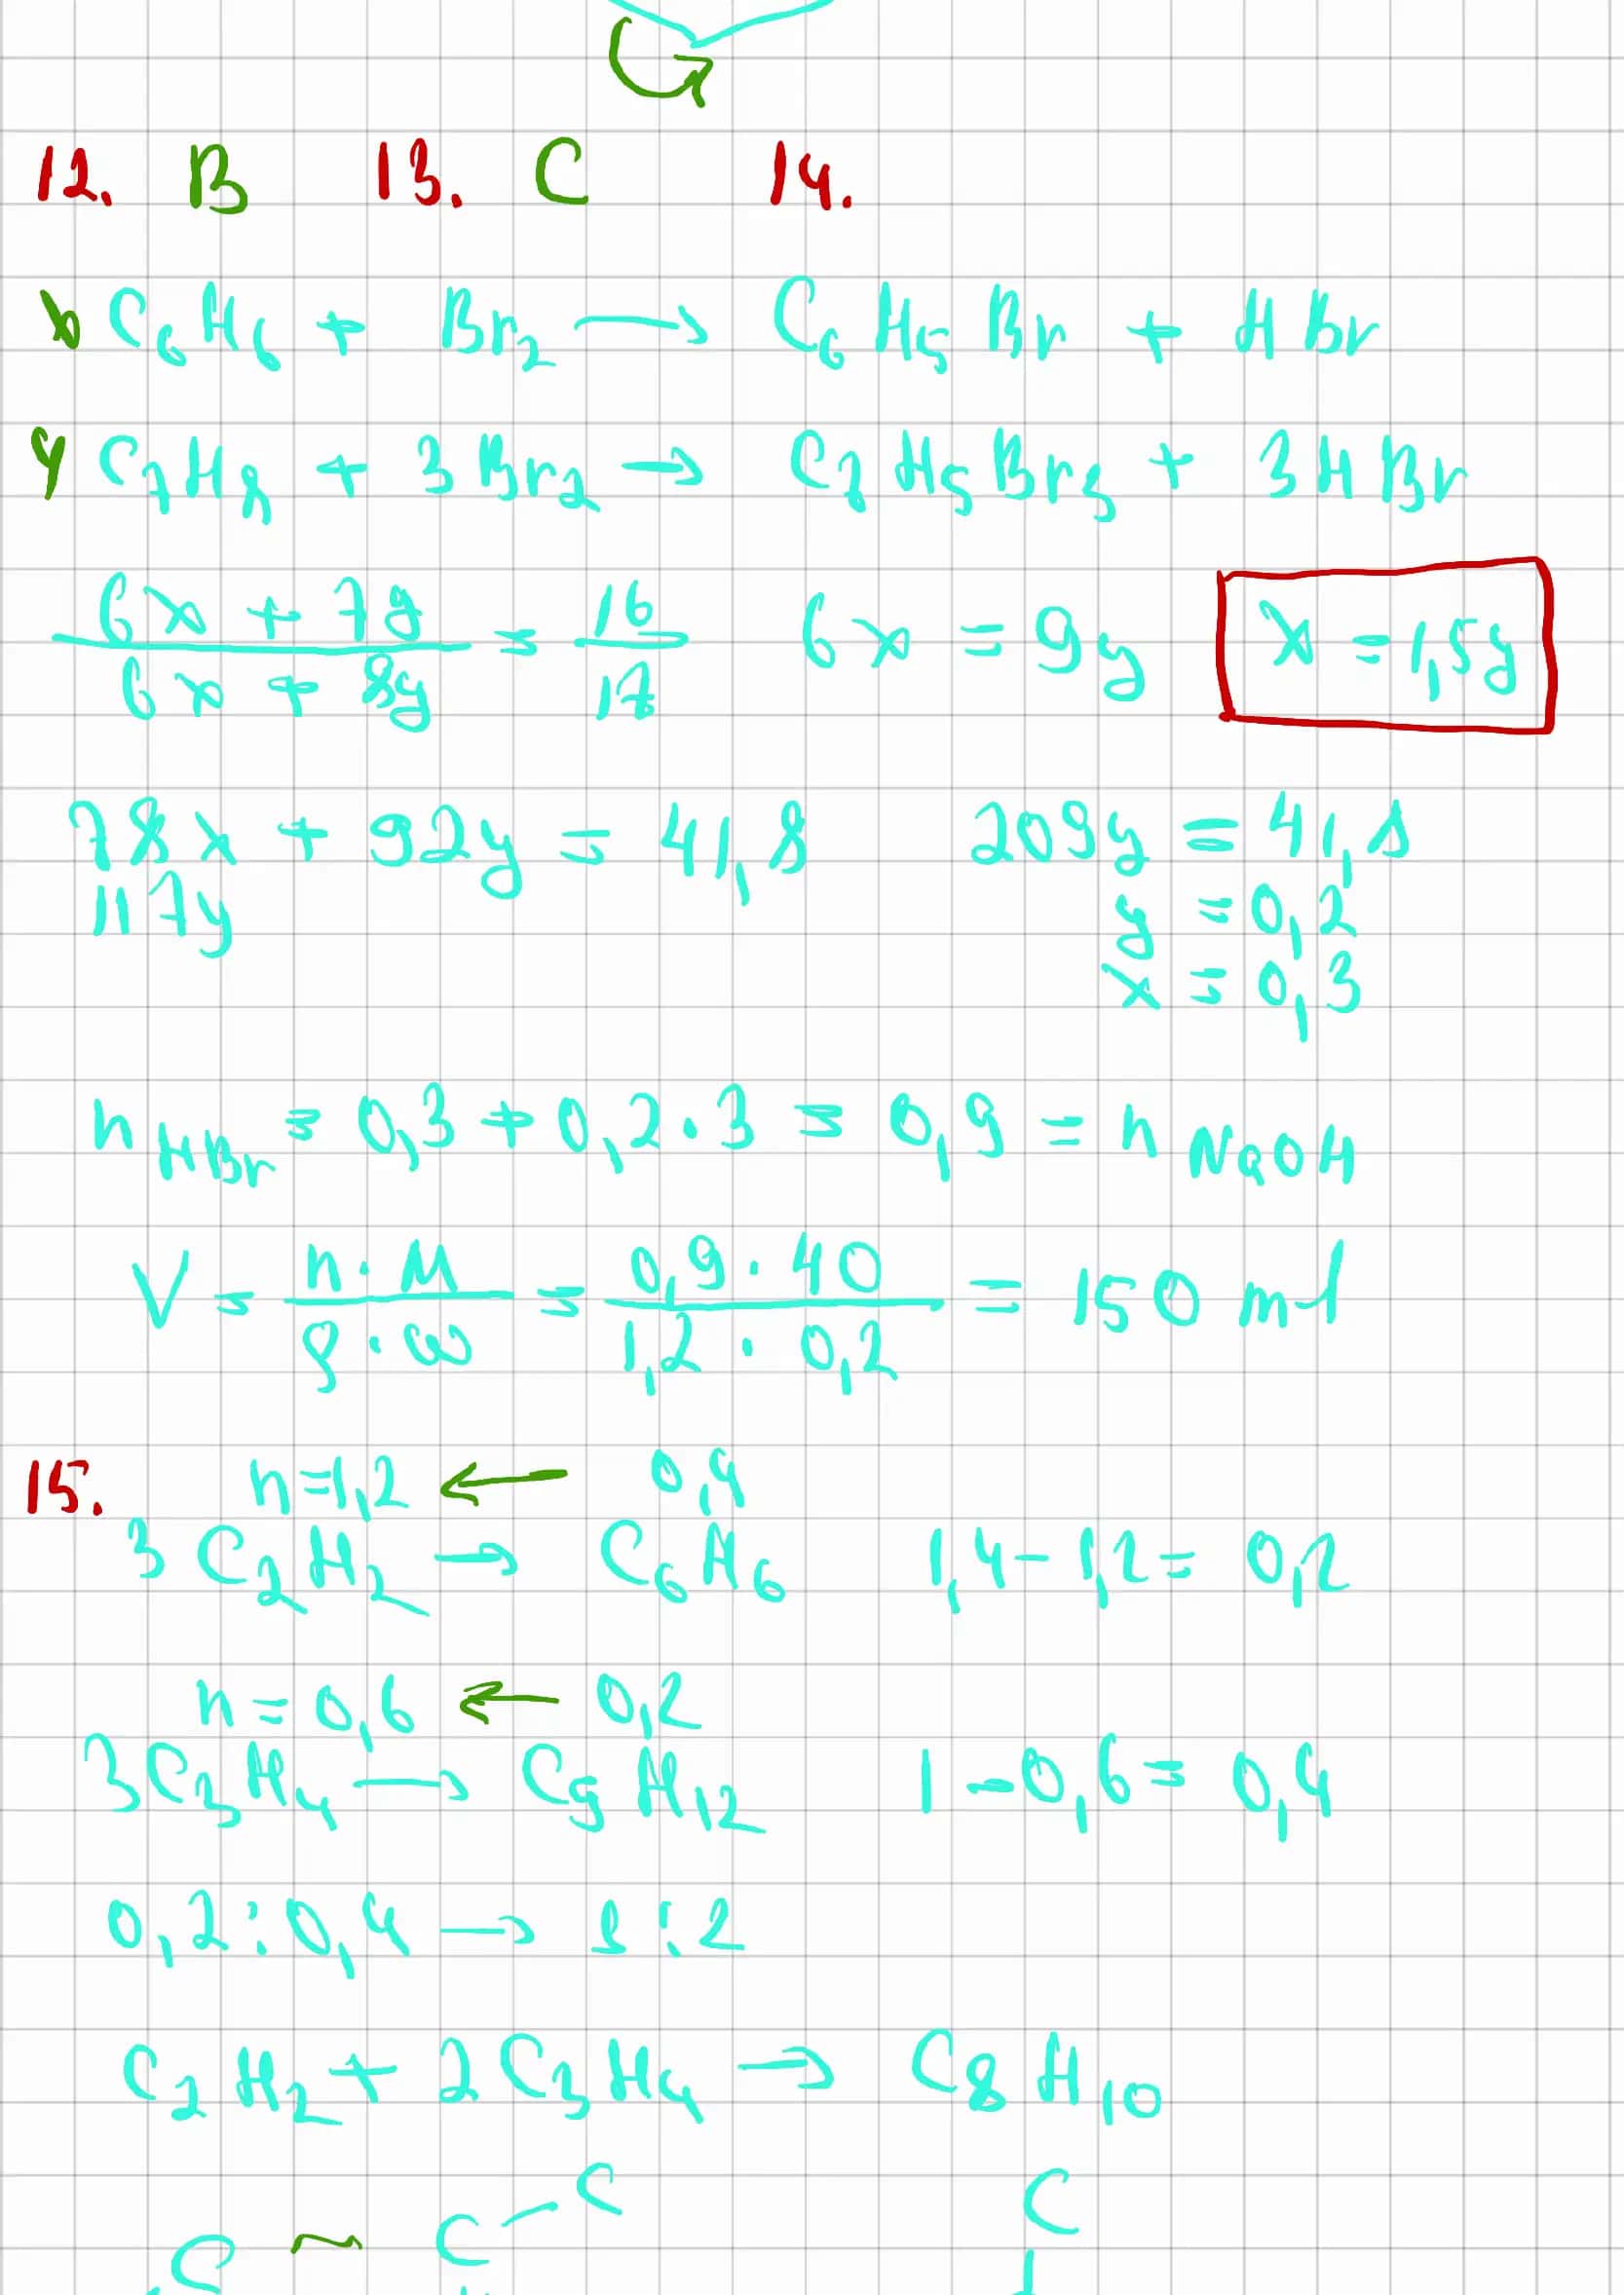 12. B 13. C 14.
x C₆H₆ + Br₂ → C₆H₅Br + HBr
y C₇H₈ + 3Br₂ → C₇H₅Br₃ + 3HBr
(6x + 7y)/(6x + 8y) = 16/17 6x = 9y x = 1,5y
78x + 92y = 41,8 209y = 41,8
117y y = 0,2
x = 0,3
n HBr = 0,3 + 0,2·3 = 0,9 = n NaOH
V = (n·M)/(ρ·ω) = (0,9·40)/(1,2·0,2) = 150 ml
15. n=1,2 ← 0,4
3C₂H₂ → C₆H₆ 1,4-1,2= 0,2
n = 0,6 ← 0,2
3C₃H₄ → C₉H₁₂ 1-0,6= 0,4
0,2:0,4 → 1:2
C₂H₂ + 2C₃H₄ → C8H₁₀
C
C ~ C – C